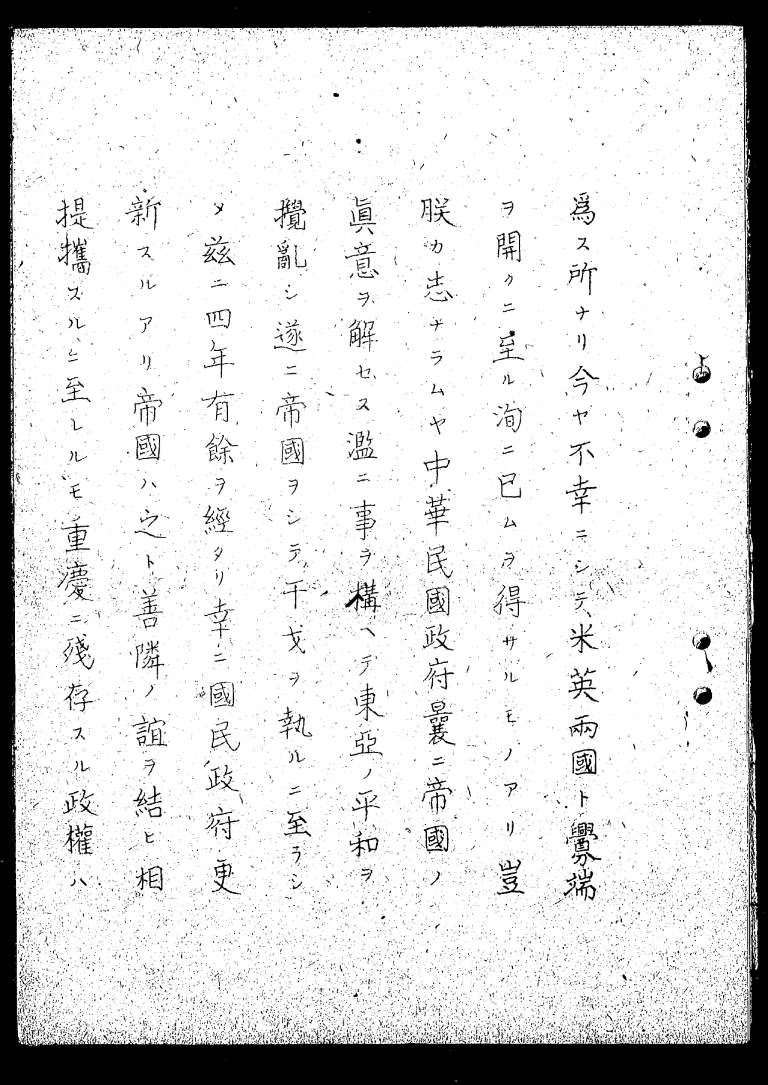 爲ス所ナリ今ヤ不幸ニシテ米英兩國ト釁端
ヲ開クニ至ル洵ニ已ムヲ得サルモノアリ豈
朕カ志ナラムヤ中華民國政府曩ニ帝國ノ
眞意ヲ解セス濫ニ事ヲ構ヘテ東亞ノ平和ヲ
攪亂シ遂ニ帝國ヲシテ干戈ヲ執ルニ至ラシ
メ玆ニ四年有餘ヲ經タリ幸ニ國民政府更
新スルアリ帝國ハ之ト善隣ノ誼ヲ結ヒ相
提攜スルニ至レルモ重慶ニ殘存スル政權ハ